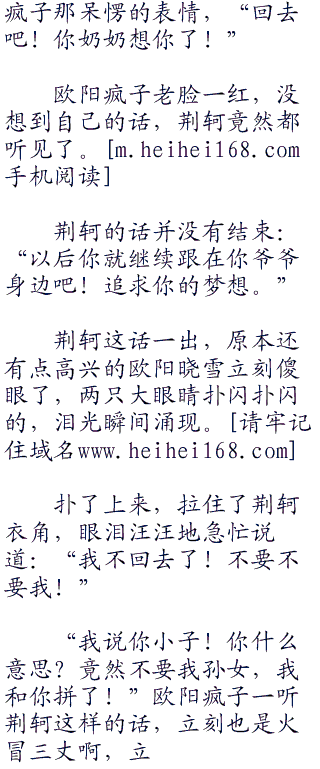 疯子那呆愣的表情，“回去
吧！你奶奶想你了！”
欧阳疯子老脸一红，没
想到自己的话，荆轲竟然都
听见了。[m.heihei168.com
手机阅读]
荆轲的话并没有结束：
“以后你就继续跟在你爷爷
身边吧！追求你的梦想。”
荆轲这话一出，原本还
有点高兴的欧阳晓雪立刻傻
眼了，两只大眼睛扑闪扑闪
的，泪光瞬间涌现。[请牢记
住域名www.heihei168.com]
扑了上来，拉住了荆轲
衣角，眼泪汪汪地急忙说
道：“我不回去了！不要不
要我！”
“我说你小子！你什么
意思？竟然不要我孙女，我
和你拼了！”欧阳疯子一听
荆轲这样的话，立刻也是火
冒三丈啊，立